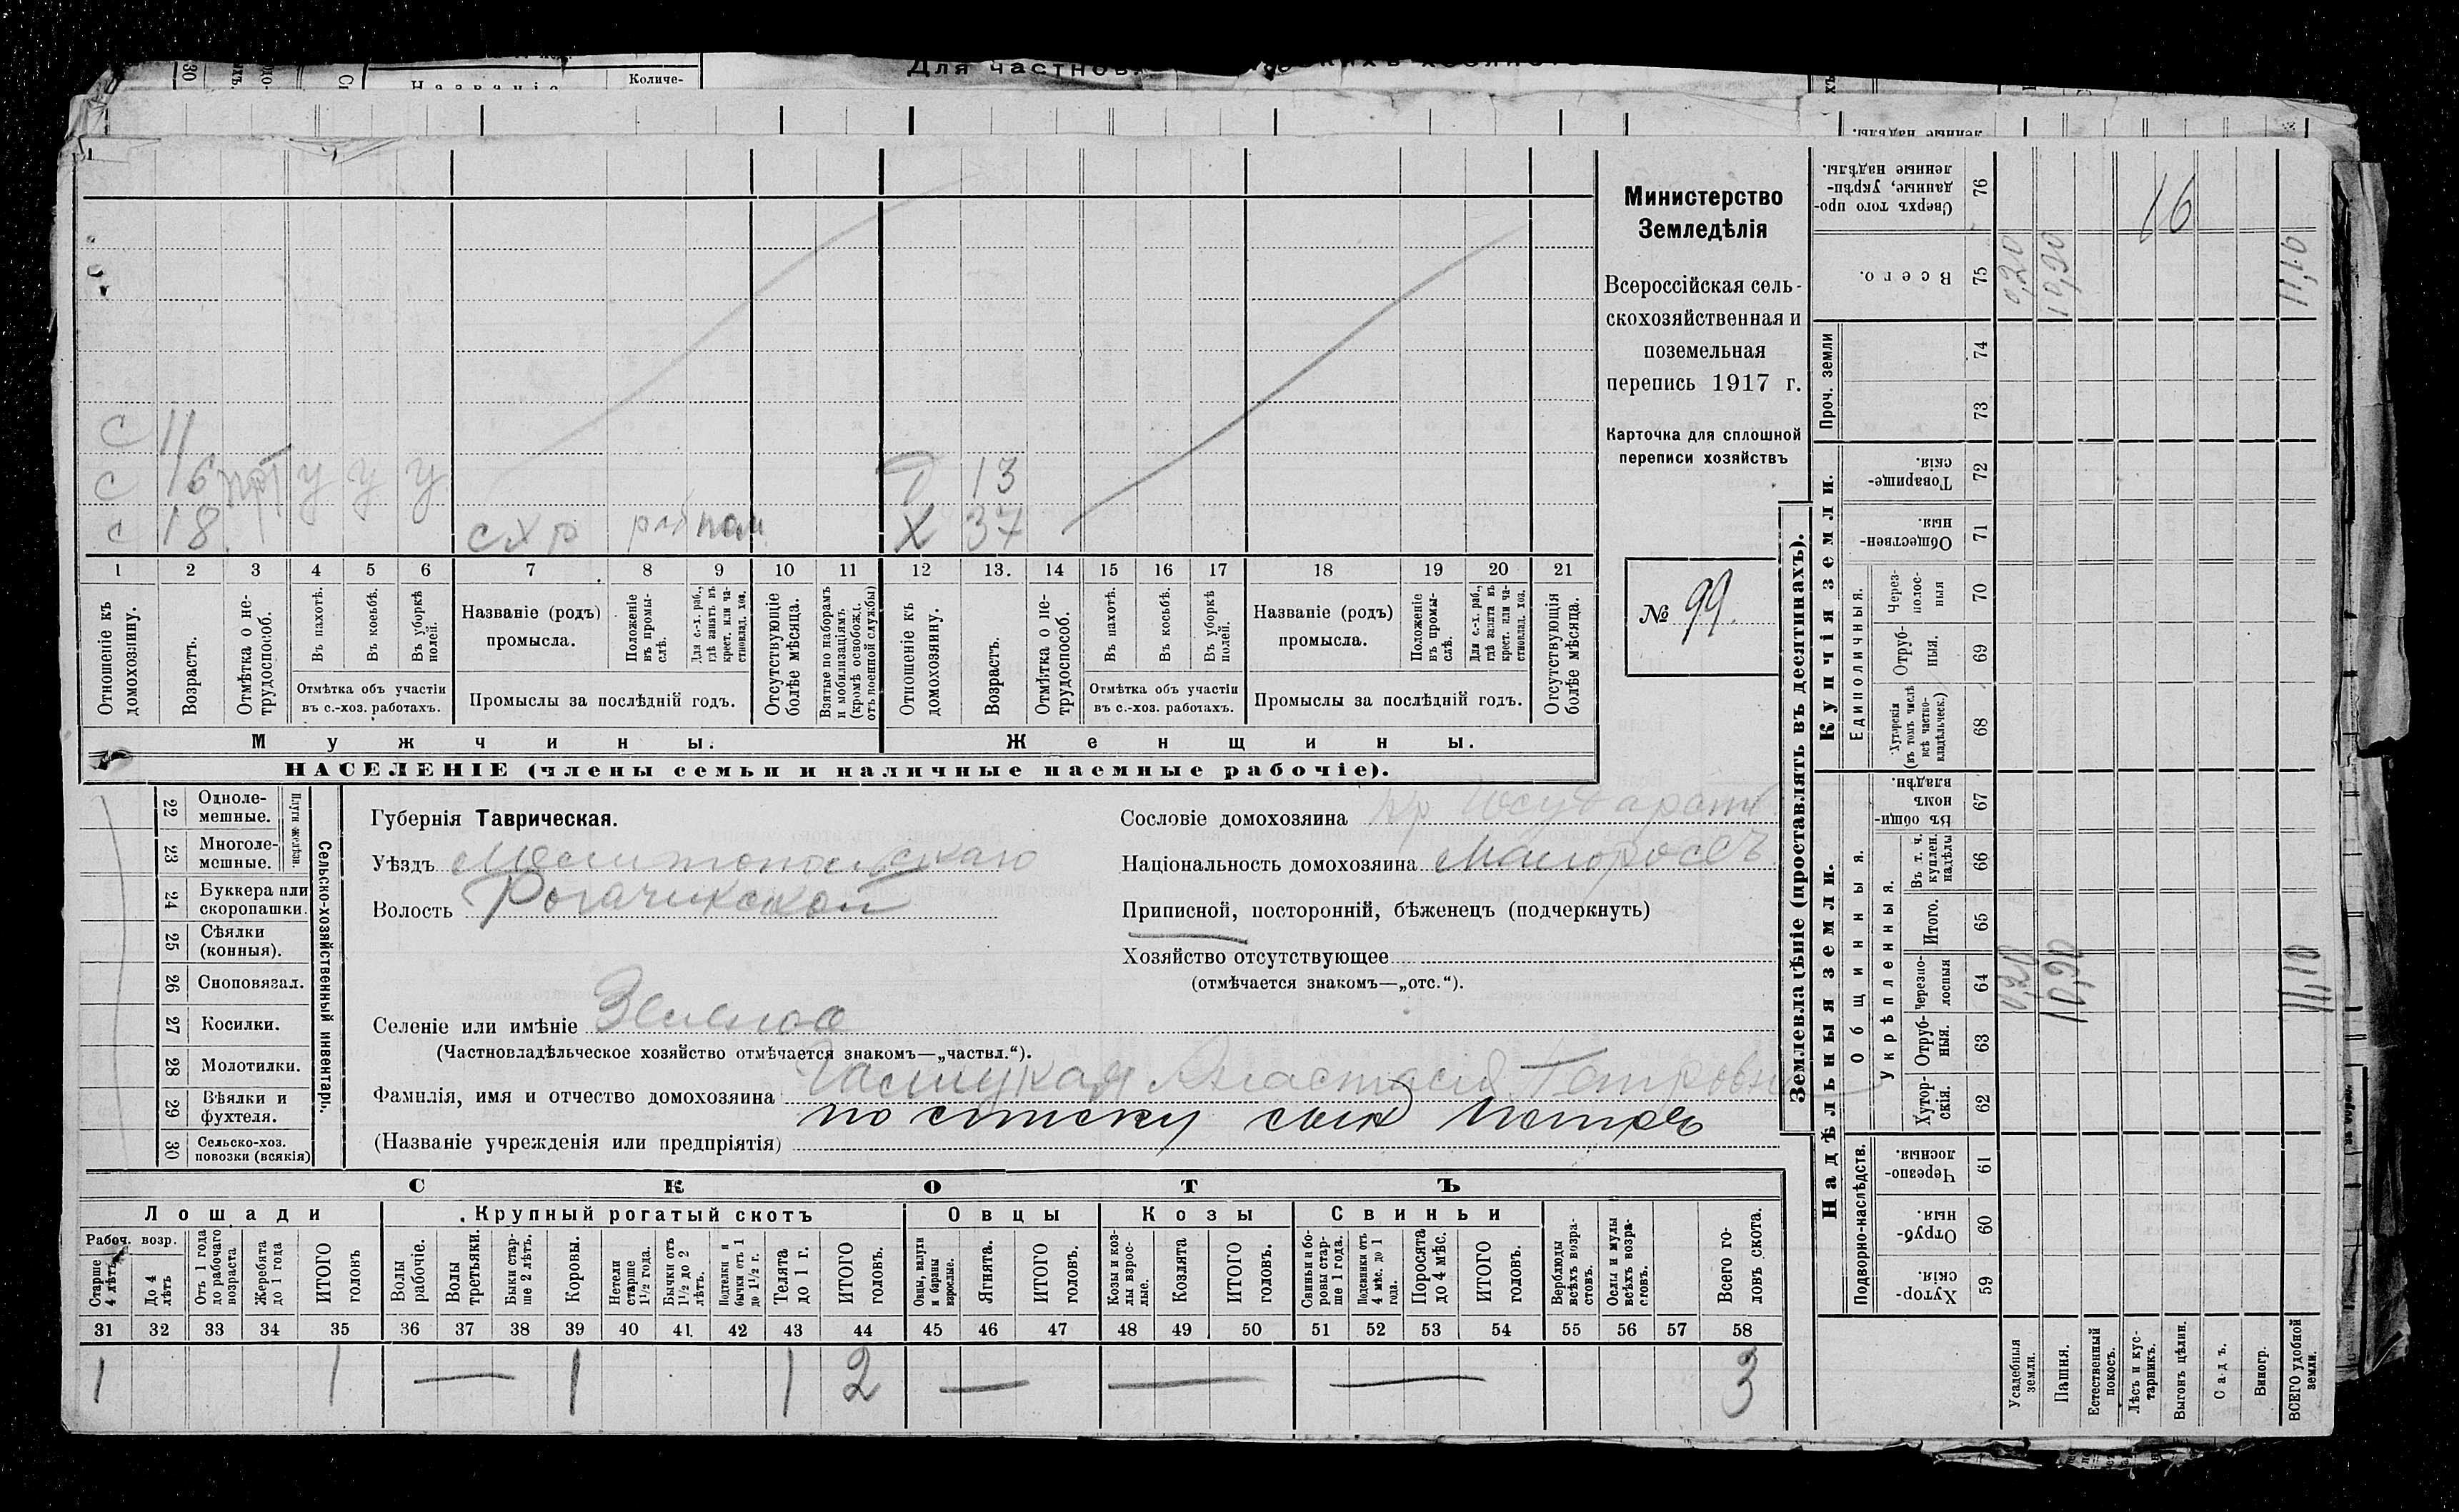 Для частнов
Названіе
Количе-
Министерство
Земледѣлія
Всероссійская сель-
скохозяйственная и
поземельная
перепись 1917 г.
Карточка для сплошной
переписи хозяйствъ
№ 99.
с 11
с 16 у у у 13
с 18 схр раб пом Х 37
1 2 3 4 5 6 7 8 9 10 11 12 13. 14 15 16 17 18 19 20 21
Отношеніе къ домохозяину.
Возрастъ.
Отмѣтка о не-трудоспособ.
Въ пахотѣ.
Въ косьбѣ.
Въ уборкѣ полей.
Отмѣтка объ участіи
въ с.-хоз. работахъ.
Названіе (родъ)
промысла.
Положеніе въ промы-слѣ.
Для с.-х. раб., гдѣ занятъ въ крест. или ча-стновлад. хоз.
Промыслы за послѣдній годъ.
Отсутствующіе болѣе мѣсяца.
Взятые по наборамъ и мобилизаціямъ (кромѣ освобожд. отъ военной службы)
Отношеніе къ домохозяину.
Возрастъ.
Отмѣтка о не-трудоспособ.
Въ пахотѣ.
Въ косьбѣ.
Въ уборкѣ полей.
Отмѣтка объ участіи
въ с.-хоз. работахъ.
Названіе (родъ)
промысла.
Положеніе въ промы-слѣ.
Для с.-х. раб., гдѣ занята въ крест. или ча-стновлад. хоз.
Промыслы за послѣдній годъ.
Отсутствующія болѣе мѣсяца.
Мужчины.
Женщины.
НАСЕЛЕНІЕ (члены семьи и наличные наемные рабочіе).
22 Одноле-мешные.
23 Многоле-мешные.
Плуги желѣзн.
24 Буккера или скоропашки.
25 Сѣялки (конныя).
26 Сноповязал.
27 Косилки.
28 Молотилки.
29 Вѣялки и фухтеля.
30 Сельско-хоз. повозки (всякія)
Сельско-хозяйственный инвентарь.
Губернія Таврическая.
Уѣздъ Мелитопольскаго
Волость Рогачикской
Селеніе или имѣніе Зеленое
(Частновладѣльческое хозяйство отмѣчается знакомъ—„частвл.“).
Фамилія, имя и отчество домохозяина Анастасія Петровна
по списку сын Петръ
(Названіе учрежденія или предпріятія)
Сословіе домохозяина
Національность домохозяина Малороссъ
Приписной, посторонній, бѣженецъ (подчеркнуть)
Хозяйство отсутствующее
(отмѣчается знакомъ—„отс.“).
СКОТЪ
Лошади
Крупный рогатый скотъ
Овцы
Козы
Свиньи
Рабоч. возр.
Старше 4 лѣтъ
До 4 лѣтъ
Отъ 1 года до рабочаго возраста
Жеребята до 1 года
ИТОГО головъ
Волы рабочіе.
Волы третьяки.
Быки стар-ше 2 лѣтъ.
Коровы.
Нетели старше 1½ года.
Бычки отъ 1½ до 2 лѣтъ.
Подтелки и бычки отъ 1 до 1½ г.
Телята до 1 г.
ИТОГО головъ.
Овцы, валухи и бараны взрослые.
Ягнята.
ИТОГО головъ.
Козы и коз-лы взрос-лые.
Козлята
ИТОГО головъ.
Свиньи и бо-ровы стар-ше 1 года.
Подсвинки отъ 4 мѣс. до 1 года.
Поросята до 4 мѣс.
ИТОГО головъ.
Верблюды всѣхъ возра-стовъ.
Ослы и мулы всѣхъ возра-стовъ.
Всего го-ловъ скота.
31 32 33 34 35 36 37 38 39 40 41. 42 43 44 45 46 47 48 49 50 51 52 53 54 55 56 57 58
1 1 — 1 1 2 — — — 3
Землевладѣніе (проставлять въ десятинахъ).
Купчія земли.
Надѣльныя земли.
Сверхъ того про-данные, укрѣп-ленные надѣлы. 76 16
Всего. 75 0,20 10,90 11,10
Проч. земли 74
73
Товарище-скія. 72
Обществен-ныя. 71
Единоличныя.
Через-полос-ныя 70
Отруб-ныя. 69
Хуторскія (въ томъ числѣ всѣ частно-владѣльческ.) 68
Общинныя.
Въ общин-номъ владѣн. 67
Укрѣпленныя.
Въ т. ч. куплен. надѣлы 66
Итого. 65
Черезпо-лосныя 64 0,20 10,90 11,10
Отруб-ныя. 63
Хутор-скія. 62
Подворно-наслѣдств.
Черезпо-лосныя. 61
Отруб-ныя. 60
Хутор-скія. 59
Усадебныя земли.
Пашня.
Естественный покосъ.
Лѣсъ и кус-тарникъ.
Выгонъ цѣлин.
Садъ.
Виногр.
ВСЕГО удобной земли.